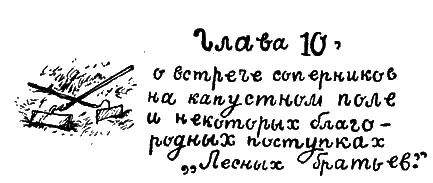 Глава 10,
о встрече соперников
на капустном поле
и некоторых благо-
родных поступках
„Лесных братьев."